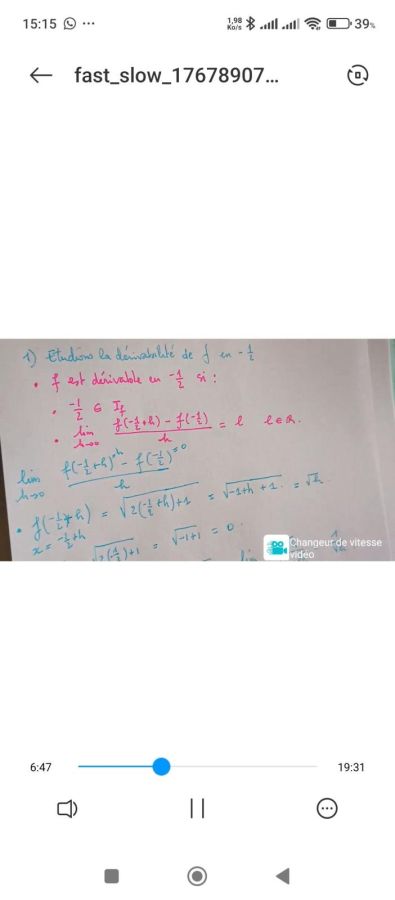 15:15 ...
1,98 Ko/s 39%
fast_slow_17678907...
1) Etudions la dérivabilité de f en -1/2
• f est dérivable en -1/2 si :
• -1/2 ∈ If
• lim h→0 (f(-1/2+h) - f(-1/2))/h = l l∈R.
lim h→0 (f(-1/2+h) - f(-1/2)=0)/h
• f(-1/2+h) = √(2(-1/2+h)+1) = √(-1+h+1) = √h
x = -1/2+h
√(2(-1/2)+1) = √(-1+1) = 0
lim
Changeur de vitesse
vidéo
6:47 19:31